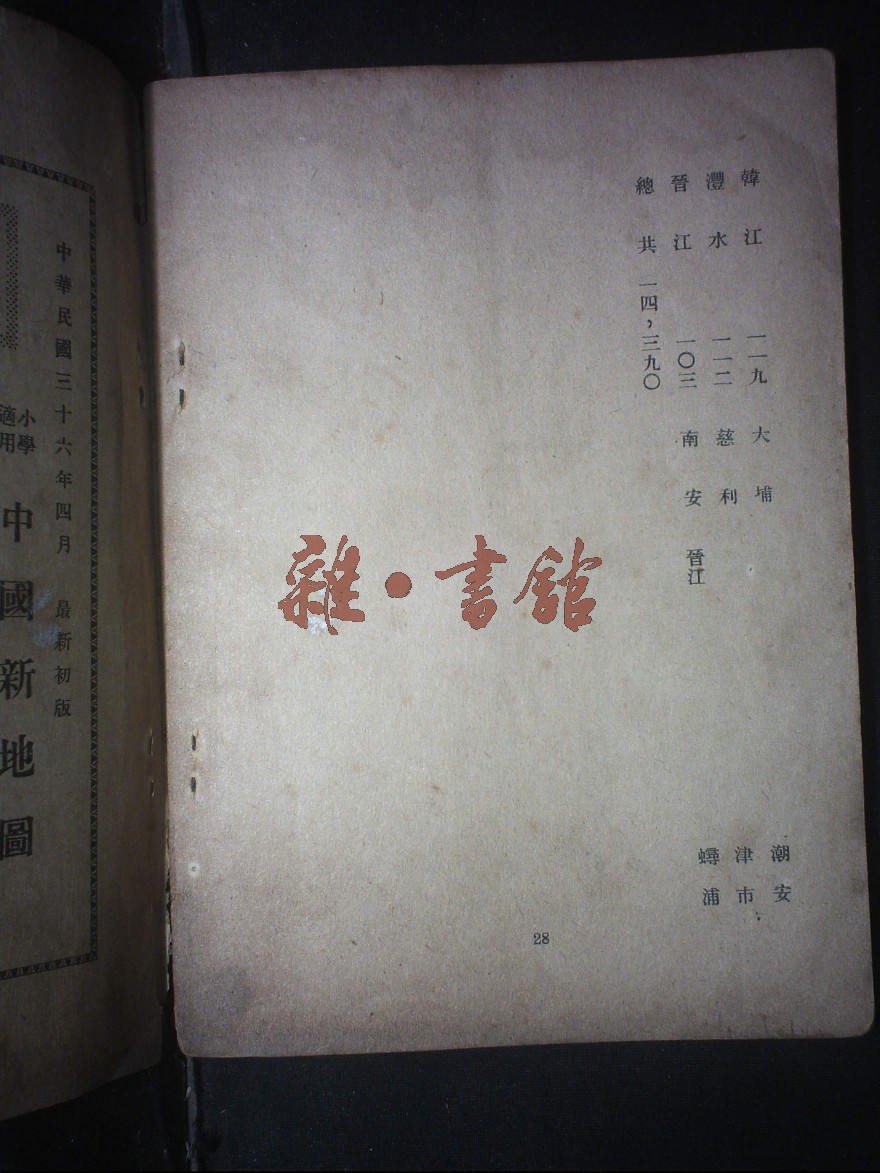 韓江 一一九 大埔 潮安
灃水 一一二 慈利 津市
晉江 一〇三 南安 晉江 蟳浦
總共 一四，三九〇
28
雜·書館
中華民國三十六年四月 最新初版
小學
適用
中國新地圖